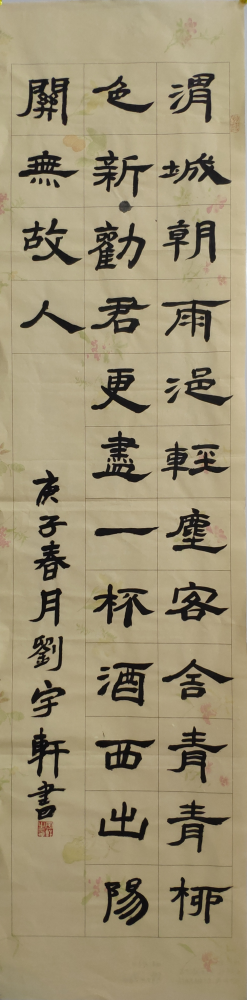 渭城朝雨浥輕塵客舍青青柳
色新勸君更盡一杯酒西出陽
關無故人
庚子春月劉宇軒書